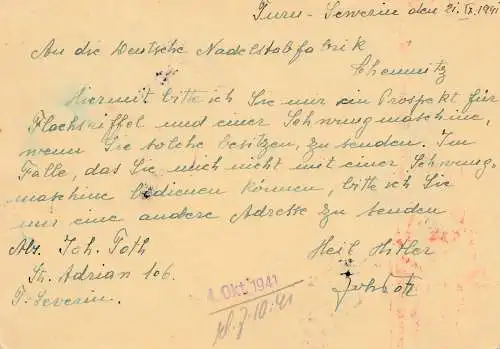 Turu - Severin den 21. IX. 1941
An die Deutsche Nadelstabfabrik
Chemnitz
Hiermit bitte ich Sie mir ein Prospekt für
Flachsriffel und einer Schwungmaschine,
wenn Sie solche besitzen, zu senden. Im
Falle, das Sie mich nicht mit einer Schwung-
maschine bedienen können, bitte ich Sie
mir eine andere Adresse zu senden
Abs. Joh. Toth
Heil Hitler
Str. Adrian 106.
T. Severin.
4. Okt 1941
7.10.41